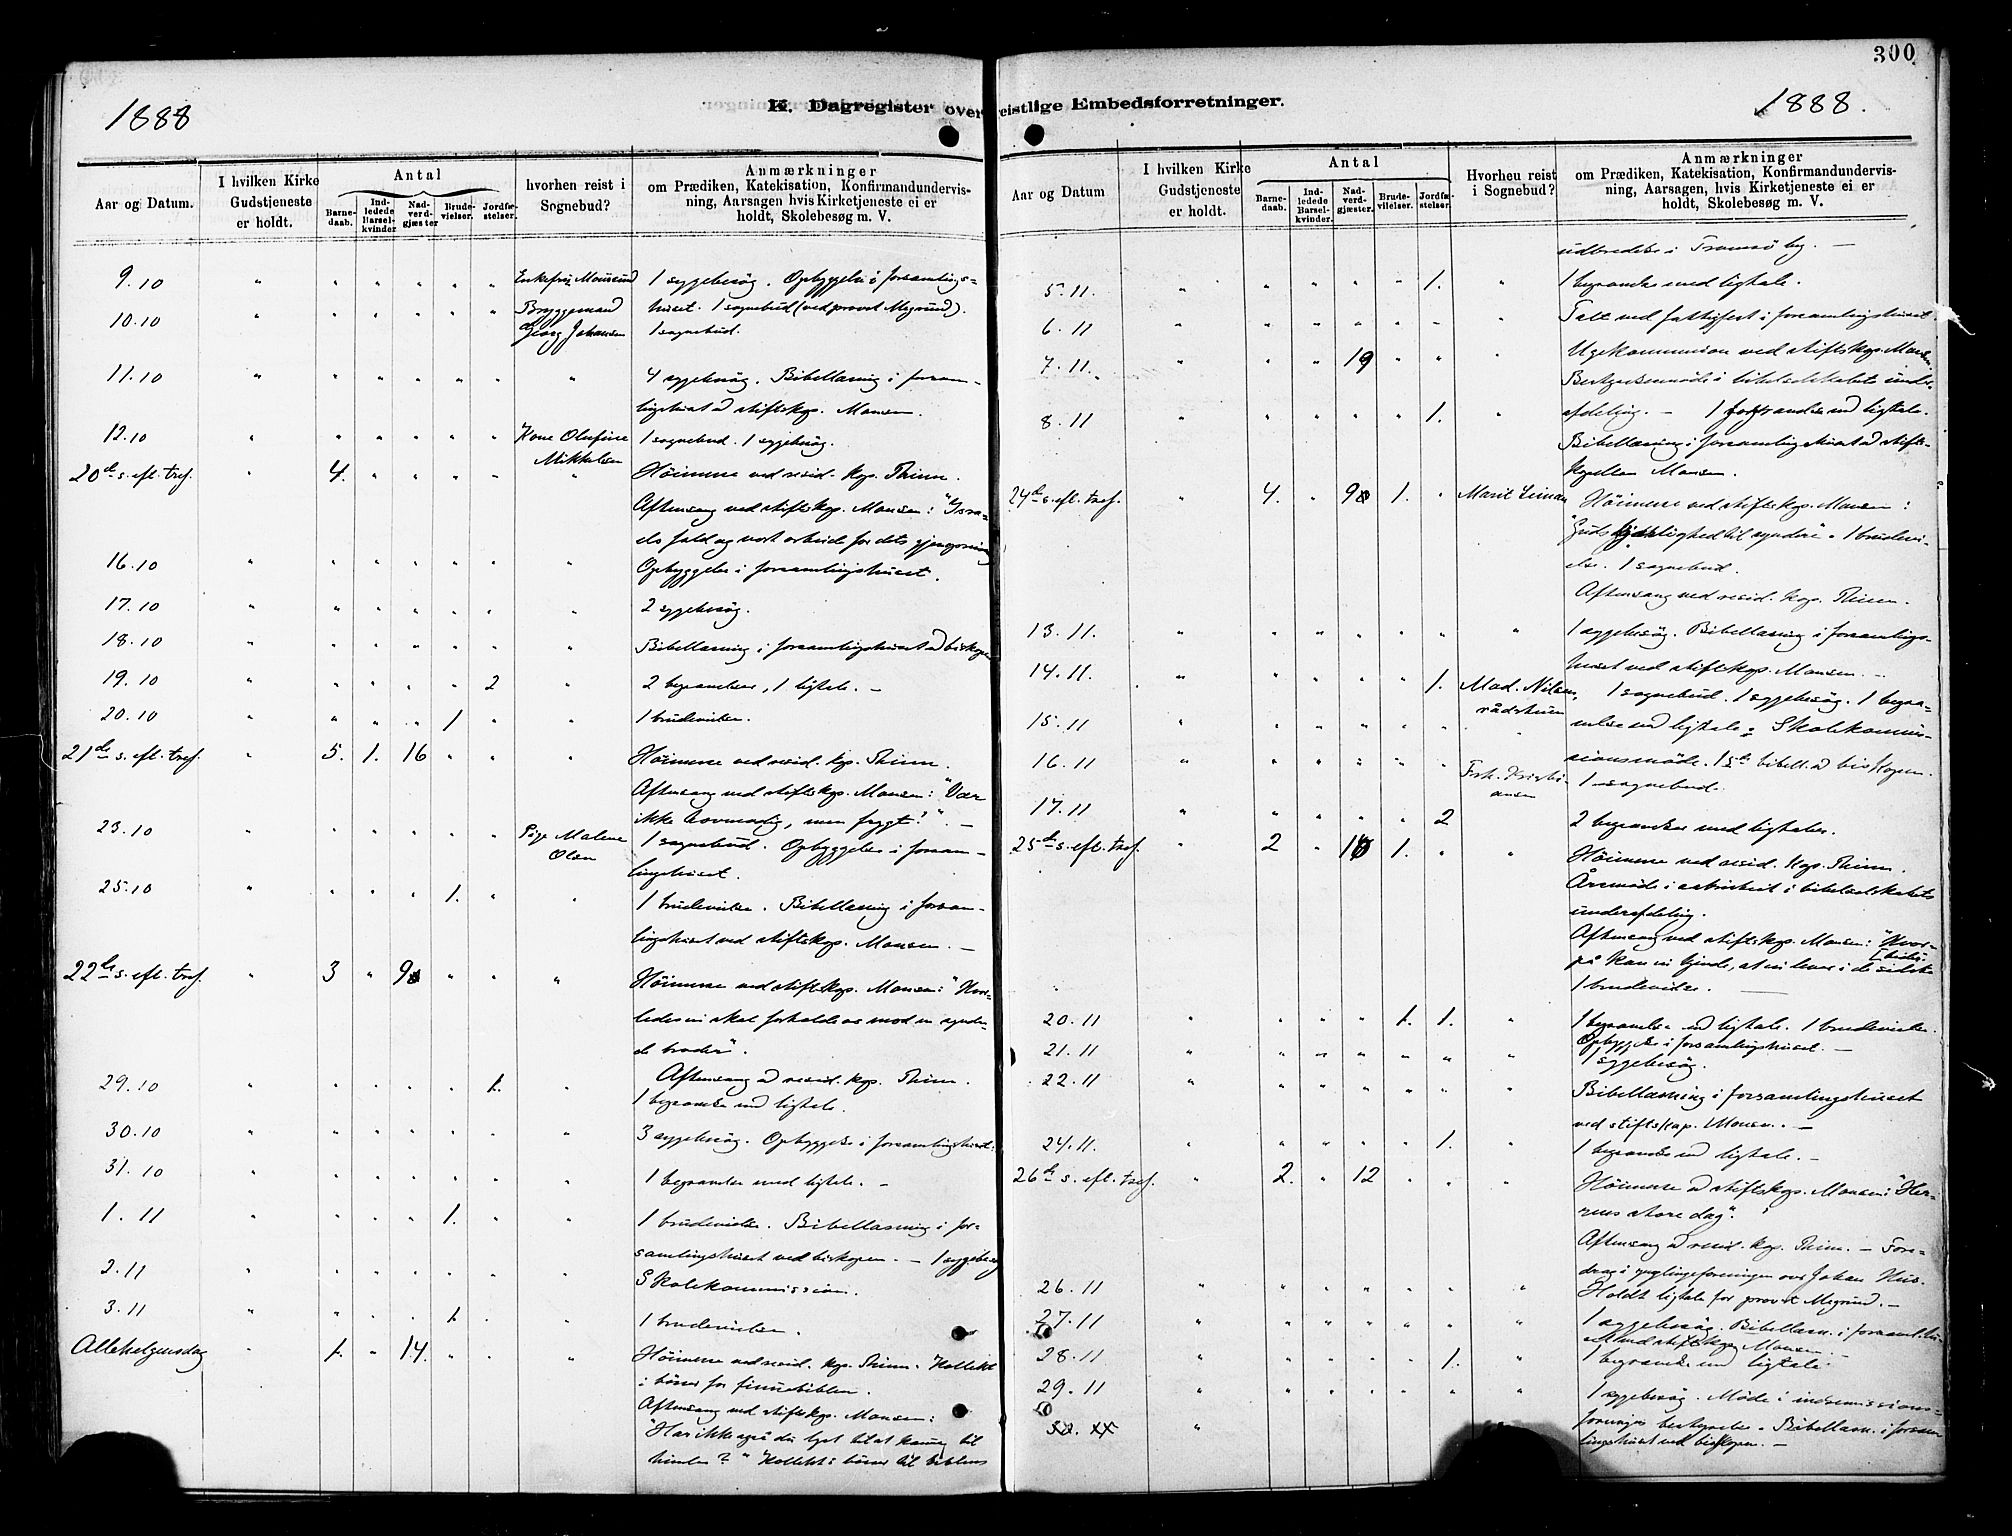 300
1888
K. Dagregister over
Aar og Datum.
I hvilken Kirke Gudstjeneste er holdt.
Antal
Barnedaab.
Indledede Barselkvinder
Nadverdgjæster
Brudevielser.
Jordfæstelser.
hvorhen reist i Sognebud?
Anmærkninger
om Prædiken, Katekisation, Konfirmandundervis-
ning, Aarsagen hvis Kirketjeneste ei er
holdt, Skolebesøg m. V.
9.10 " " " " " " Enkefru 1 sygebesøg. Opbyggelse i forsamlings-
10.10 " " " " " " Bryggemand huset. 1 sognebud (ved provst Megrund).
Georg Johansen 1 sognebud.
11.10 " " " " " " " 4 sygebesøg. Bibellæsning i forsam-
lingshuset ved stiftskap. Monsen.
12.10 " " " " " " Kone Olufine 1 sognebud. 1 sygebesøg.
Mikkelsen
20de s. eft. tref. " 4. " " " " " Høimesse ved resid. kap. Thinn.
Aftensang ved stiftskap. Monsen: "Isra-
els fald og vort arbeide for dets gjenreisning
16.10 " " " " " " " Opbyggelse i forsamlingshuset.
17.10 " " " " " " " 2 sygebesøg.
18.10 " " " " " " " Bibellæsning i forsamlingshuset ved biskopen
19.10 " " " " " 2 " 2 begravelser, 1 ligtale. -
20.10 " " " " 1 " " 1 brudevielse.
21de s. eft. tref. " 5. 1. 16 " " " Høimesse ved resid. kap. Thinn.
Aftensang ved stiftskap. Monsen: "Vær
ikke hovmodig, men frygt!". -
23.10 " " " " " " Pige Malene 1 sognebud. Opbyggelse i forsam-
Olsen lingshuset.
25.10 " " " " 1. " " 1 brudevielse. Bibellæsning i forsam-
lingshuset ved stiftskap. Monsen. -
22de s. eft. tref. " 3 " 9 " " " Høimesse ved stiftskap. Monsen: "Hvor-
ledes vi skal forholde os mod en synden-
de broder".
Aftensang ved resid. kap. Thinn.
29.10 " " " " " 1. " 1 begravelse med ligtale.
30.10 " " " " " " " 3 sygebesøg. Opbyggelse i forsamlingshuset.
31.10 " " " " " " " 1 begravelse med ligtale. -
1.11 " " " " 1. " " 1 brudevielse. Bibellæsning i for-
samlingshuset ved biskopen. - 1 sygebesøg
2.11 " " " " " " " Skolekommission.
3.11 " " " " 1 " " 1 brudevielse.
Allehelgensdag " 1. " 14. " " " Høimesse ved resid. kap. Thinn. Kollekt
i bøsser for finnebiblen.
Aftensang ved stiftskap. Monsen:
"Har ikke også du lyst til at komme til
himlen?" Kollekt i bøsser til biblens
eistlige Embedsforretninger.
1888.
Aar og Datum
I hvilken Kirke Gudstjeneste er holdt.
Antal
Barnedaab.
Indledede Barselkvinder
Nadverdgjæster.
Brudevielser.
Jordfæstelser.
Hvorheu reist i Sognebud?
Anmærkninger
om Prædiken, Katekisation, Konfirmandundervis-
ning, Aarsagen, hvis Kirketjeneste ei er
holdt, Skolebesøg m. V.
udbredelse i Tromsø by. -
5.11. " " " " " 1. " 1 begravelse med ligtale.
6.11 " " " " " " " Tale ved fattigfest i forsamlingshuset.
7.11. " " " 19 " " " Ugekommunion ved stiftskap. Monsen
Bestyrelsesmøde i bibelselskabets under-
8.11 " " " " " 1. " afdeling. - 1 med ligtale.
Bibellæsning i forsamlingshuset ved stifts-
kapellan Monsen.
24de s. eft. tref. " 4. " 9 1. " Marit Høimesse ved stiftskap. Monsen:
"Guds kjærlighed til syndere". 1 brudevi-
else. 1 sognebud.
Aftensang ved resid. kap. Thinn.
13.11. " " " " " " " 1 sygebesøg. Bibellæsning i forsamlings-
huset ved stiftskap. Monsen. -
14.11. " " " " " 1. Mad. Nilsen, 1 sognebud. 1 sygebesøg. 1 begra-
rådstuen
15.11 " " " " " " " velse med ligtale. Skolekommis-
16.11 " " " " " " sionsmøde. bibell. ved biskopen.
Frk. Kristi-
ansen 1 sognebud.
17.11 " " " " " 2 2 begravelser med ligtaler.
25de s. eft. tref. " 2 " 10 1. " " Høimesse ved resid. kap. Thinn.
Årsmøde i bibelselskabets
underafdeling.
Aftensang ved stiftskap. Monsen: "Hvor-
på kan vi kjende, at vi lever i de sidste
[tider
1 brudevielse.
20.11 " " " " 1. 1. " 1 begravelse med ligtale. 1 brudevielse.
Opbyggelse i forsamlingshuset. -
21.11 " " " " " " " 1 sygebesøg.
22.11 " " " " " " " Bibellæsning i forsamlingshuset
ved stiftskap. Monsen. -
24.11. " " " " " 1. " 1 begravelse med ligtale. -
26de s. eft. tref. " 2. " 12 " " " Høimesse ved stiftskap. Monsen: "Her-
rens store dag".
Aftensang ved resid. kap. Thinn. - Fore-
drag i ynglingeforeningen over Johan Hus.
26.11 " " " " " " " Holdt ligtale for provst Megrund. -
27.11 " " " " " " " 1 sygebesøg. Bibellæsn. i forsaml.hu-
set ved stiftskap. Monsen.
28.11 " " " " " 1. " 1 begravelse med ligtale.
29.11 " " " " " " " 1 sygebesøg. Møde i indremissions-
foreningens bestyrelse. Bibellæsn. i forsam-
lingshuset ved biskopen. -